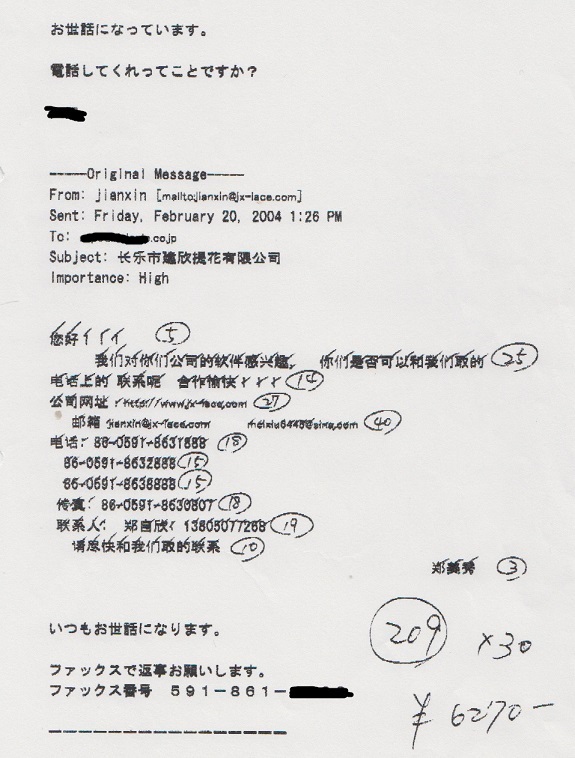 お世話になっています。
電話してくれってことですか？
-----Original Message-----
From: jianxin [mailto:jianxin@jx-lace.com]
Sent: Friday, February 20, 2004 1:26 PM
To: .co.jp
Subject: 长乐市建欣提花有限公司
Importance: High
您好！！！ 5
我们对你们公司的软件感兴趣， 你们是否可以和我们取的 25
电话上的 联系呢 合作愉快 14
公司网址：http://www.jx-lace.com 27
邮箱 jianxin@jx-lace.com meixiu6448@sina.com 40
电话：86-0591-8631888 18
86-0591-8632888 15
86-0591-8638888 15
传真：86-0591-8630807 18
联系人： 郑自欣：13805077268 19
请尽快和我们取的联系 10
郑美秀 3
いつもお世話になります。
209 ×30
ファックスで返事お願いします。
ファックス番号 ５９１－８６１－
¥ 6270-